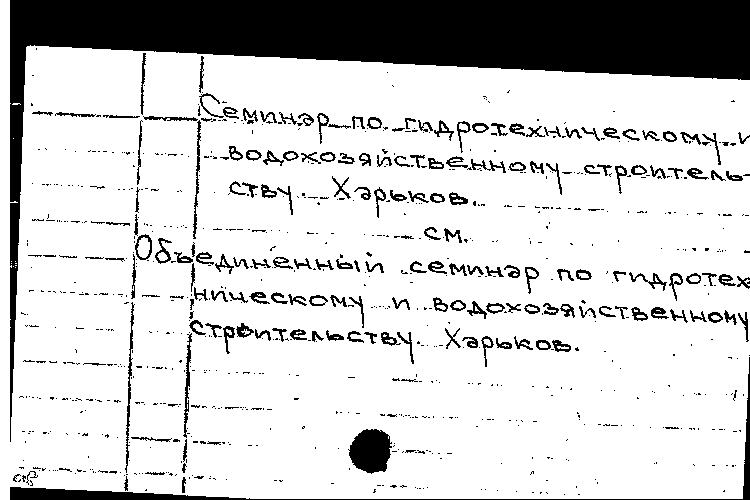 Семинар по гидротехническому и
водохозяйственному строитель-
ству. Харьков.
см.
Объединенный семинар по гидротех
ническому и водохозяйственному
строительству. Харьков.